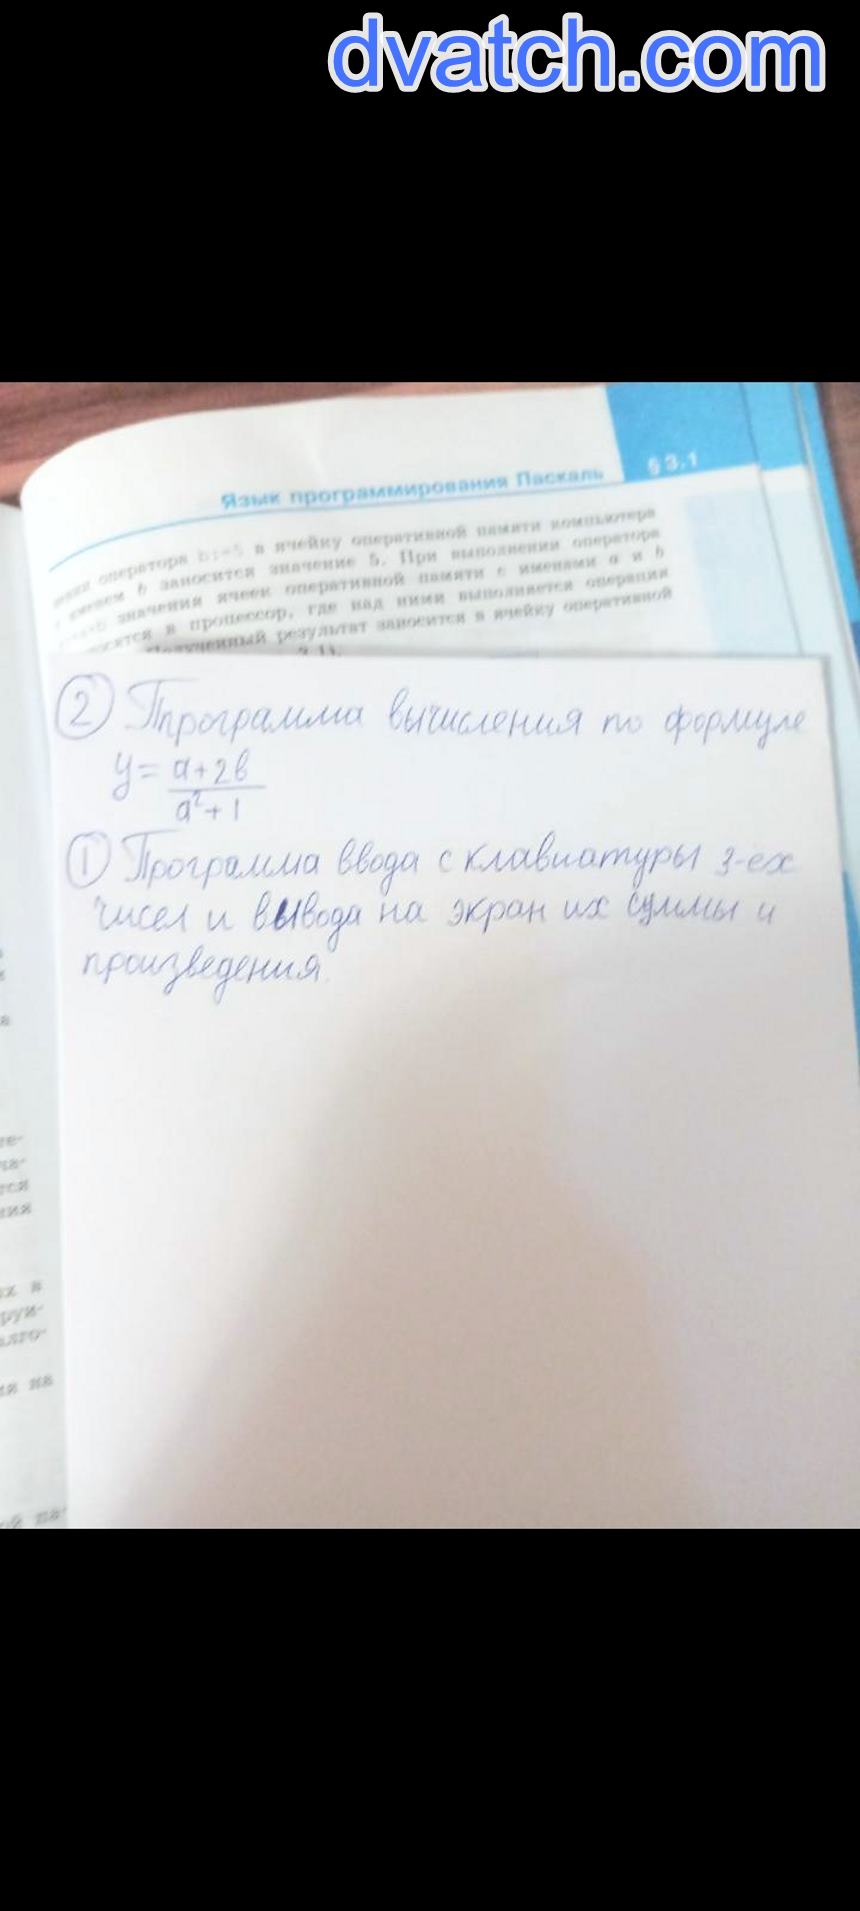 dvatch.com
Язык программирования Паскаль §3.1
оператора b:=5 в ячейку оперативной памяти компьютера
с именем b заносится значение 5. При выполнении оператора
значения ячеек оперативной памяти с именами a и b
в процессор, где над ними выполняется операция
Полученный результат заносится в ячейку оперативной
② Ппрограмма вычисления по формуле
y = a+2b
a²+1
① Программа ввода с клавиатуры 3-ех
чисел и вывода на экран их суммы и
произведения.